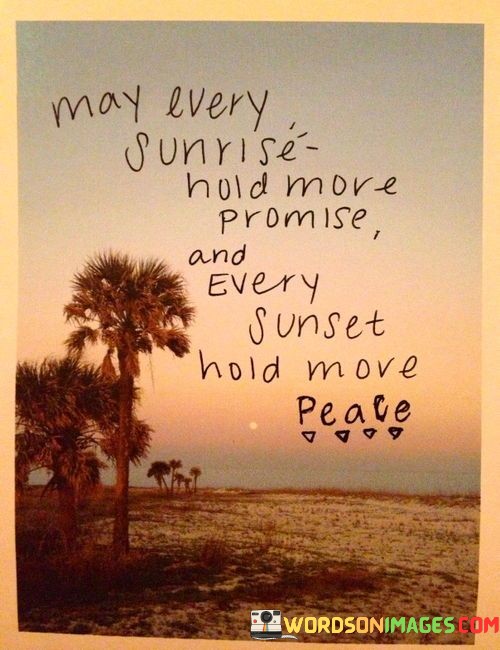 may every
sunrise
hold more
promise,
and
Every
sunset
hold more
Peace
WORDSONIMAGES.COM